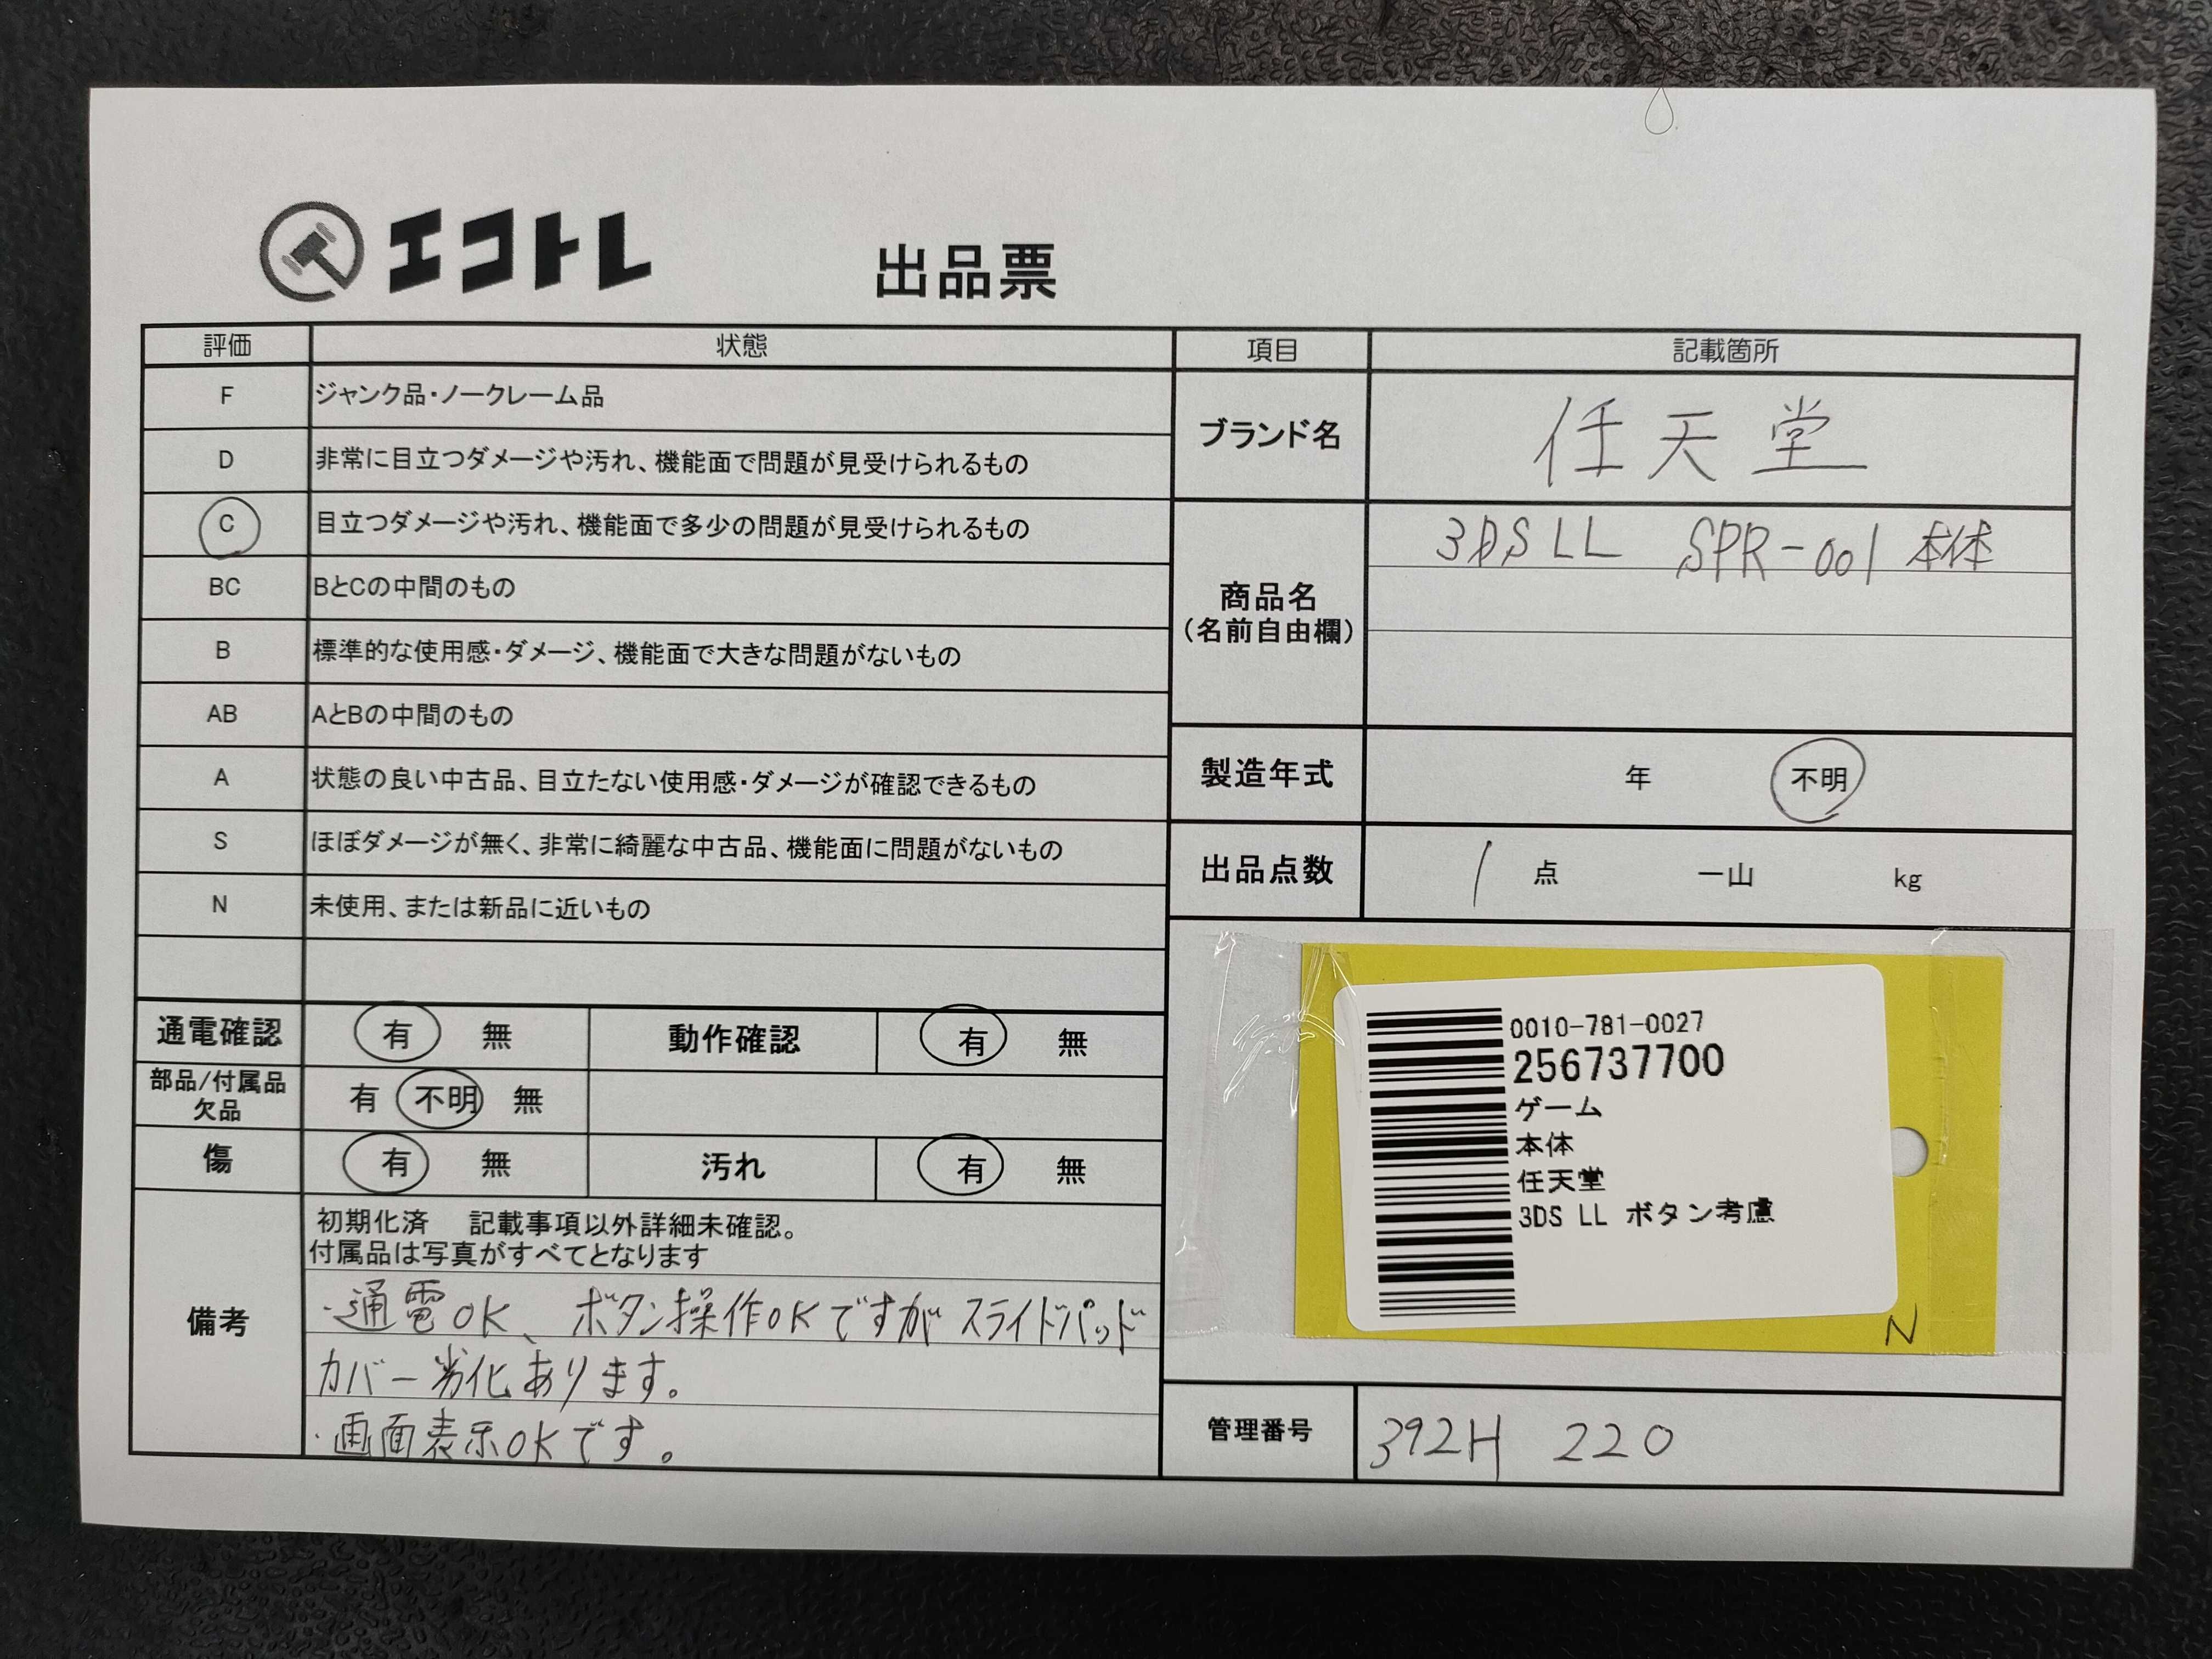 エコトレ
出品票
評価 状態
F ジャンク品・ノークレーム品
D 非常に目立つダメージや汚れ、機能面で問題が見受けられるもの
C 目立つダメージや汚れ、機能面で多少の問題が見受けられるもの
BC BとCの中間のもの
B 標準的な使用感・ダメージ、機能面で大きな問題がないもの
AB AとBの中間のもの
A 状態の良い中古品、目立たない使用感・ダメージが確認できるもの
S ほぼダメージが無く、非常に綺麗な中古品、機能面に問題がないもの
N 未使用、または新品に近いもの
通電確認 有 無 動作確認 有 無
部品/付属品
欠品 有 不明 無
傷 有 無 汚れ 有 無
備考
初期化済 記載事項以外詳細未確認。
付属品は写真がすべてとなります
・通電OK、ボタン操作OKですがスライドパッド
カバー劣化あります。
・画面表示OKです。
項目 記載箇所
ブランド名 任天堂
商品名
(名前自由欄)
3DS LL SPR-001 本体
製造年式 年 不明
出品点数 1 点 一山 kg
0010-781-0027
256737700
ゲーム
本体
任天堂
3DS LL ボタン考慮
N
管理番号 392H 220